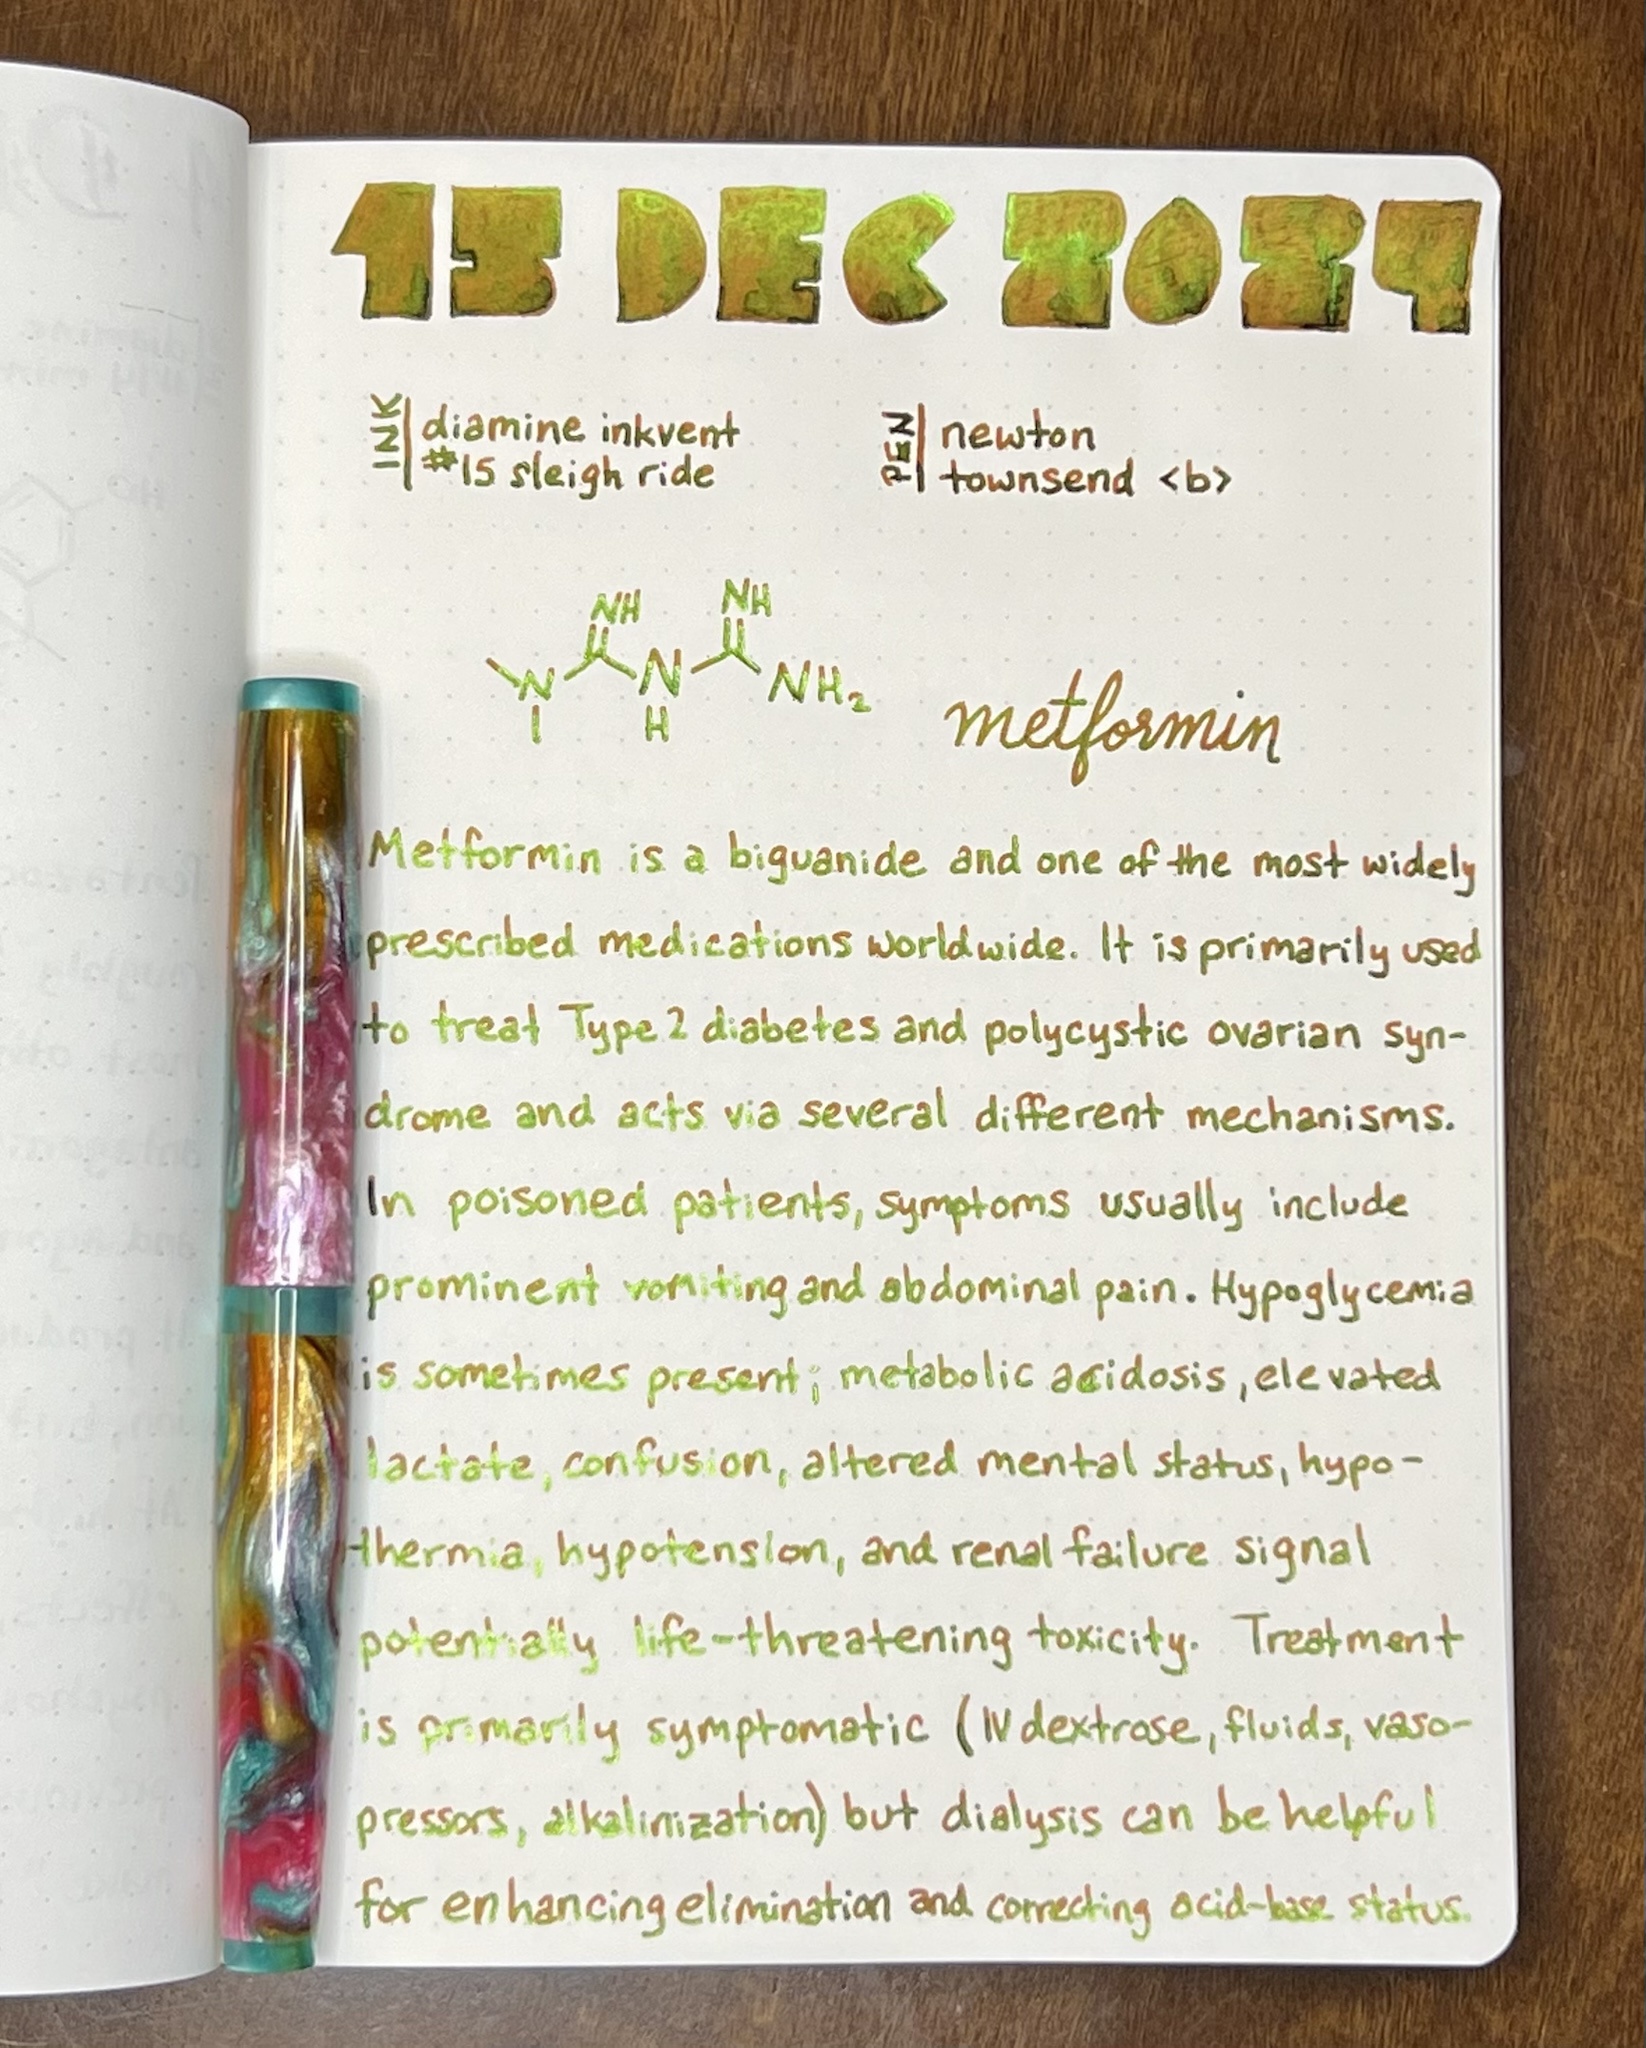 15 DEC 2024
INK
diamine inkvent
#15 sleigh ride
PEN
newton
townsend <b>
NH
NH
N
N
H
NH₂
metformin
Metformin is a biguanide and one of the most widely
prescribed medications worldwide. It is primarily used
to treat Type 2 diabetes and polycystic ovarian syn-
drome and acts via several different mechanisms.
In poisoned patients, symptoms usually include
prominent vomiting and abdominal pain. Hypoglycemia
is sometimes present; metabolic acidosis, elevated
lactate, confusion, altered mental status, hypo-
thermia, hypotension, and renal failure signal
potentially life-threatening toxicity. Treatment
is primarily symptomatic (IV dextrose, fluids, vaso-
pressors, alkalinization) but dialysis can be helpful
for enhancing elimination and correcting acid-base status.